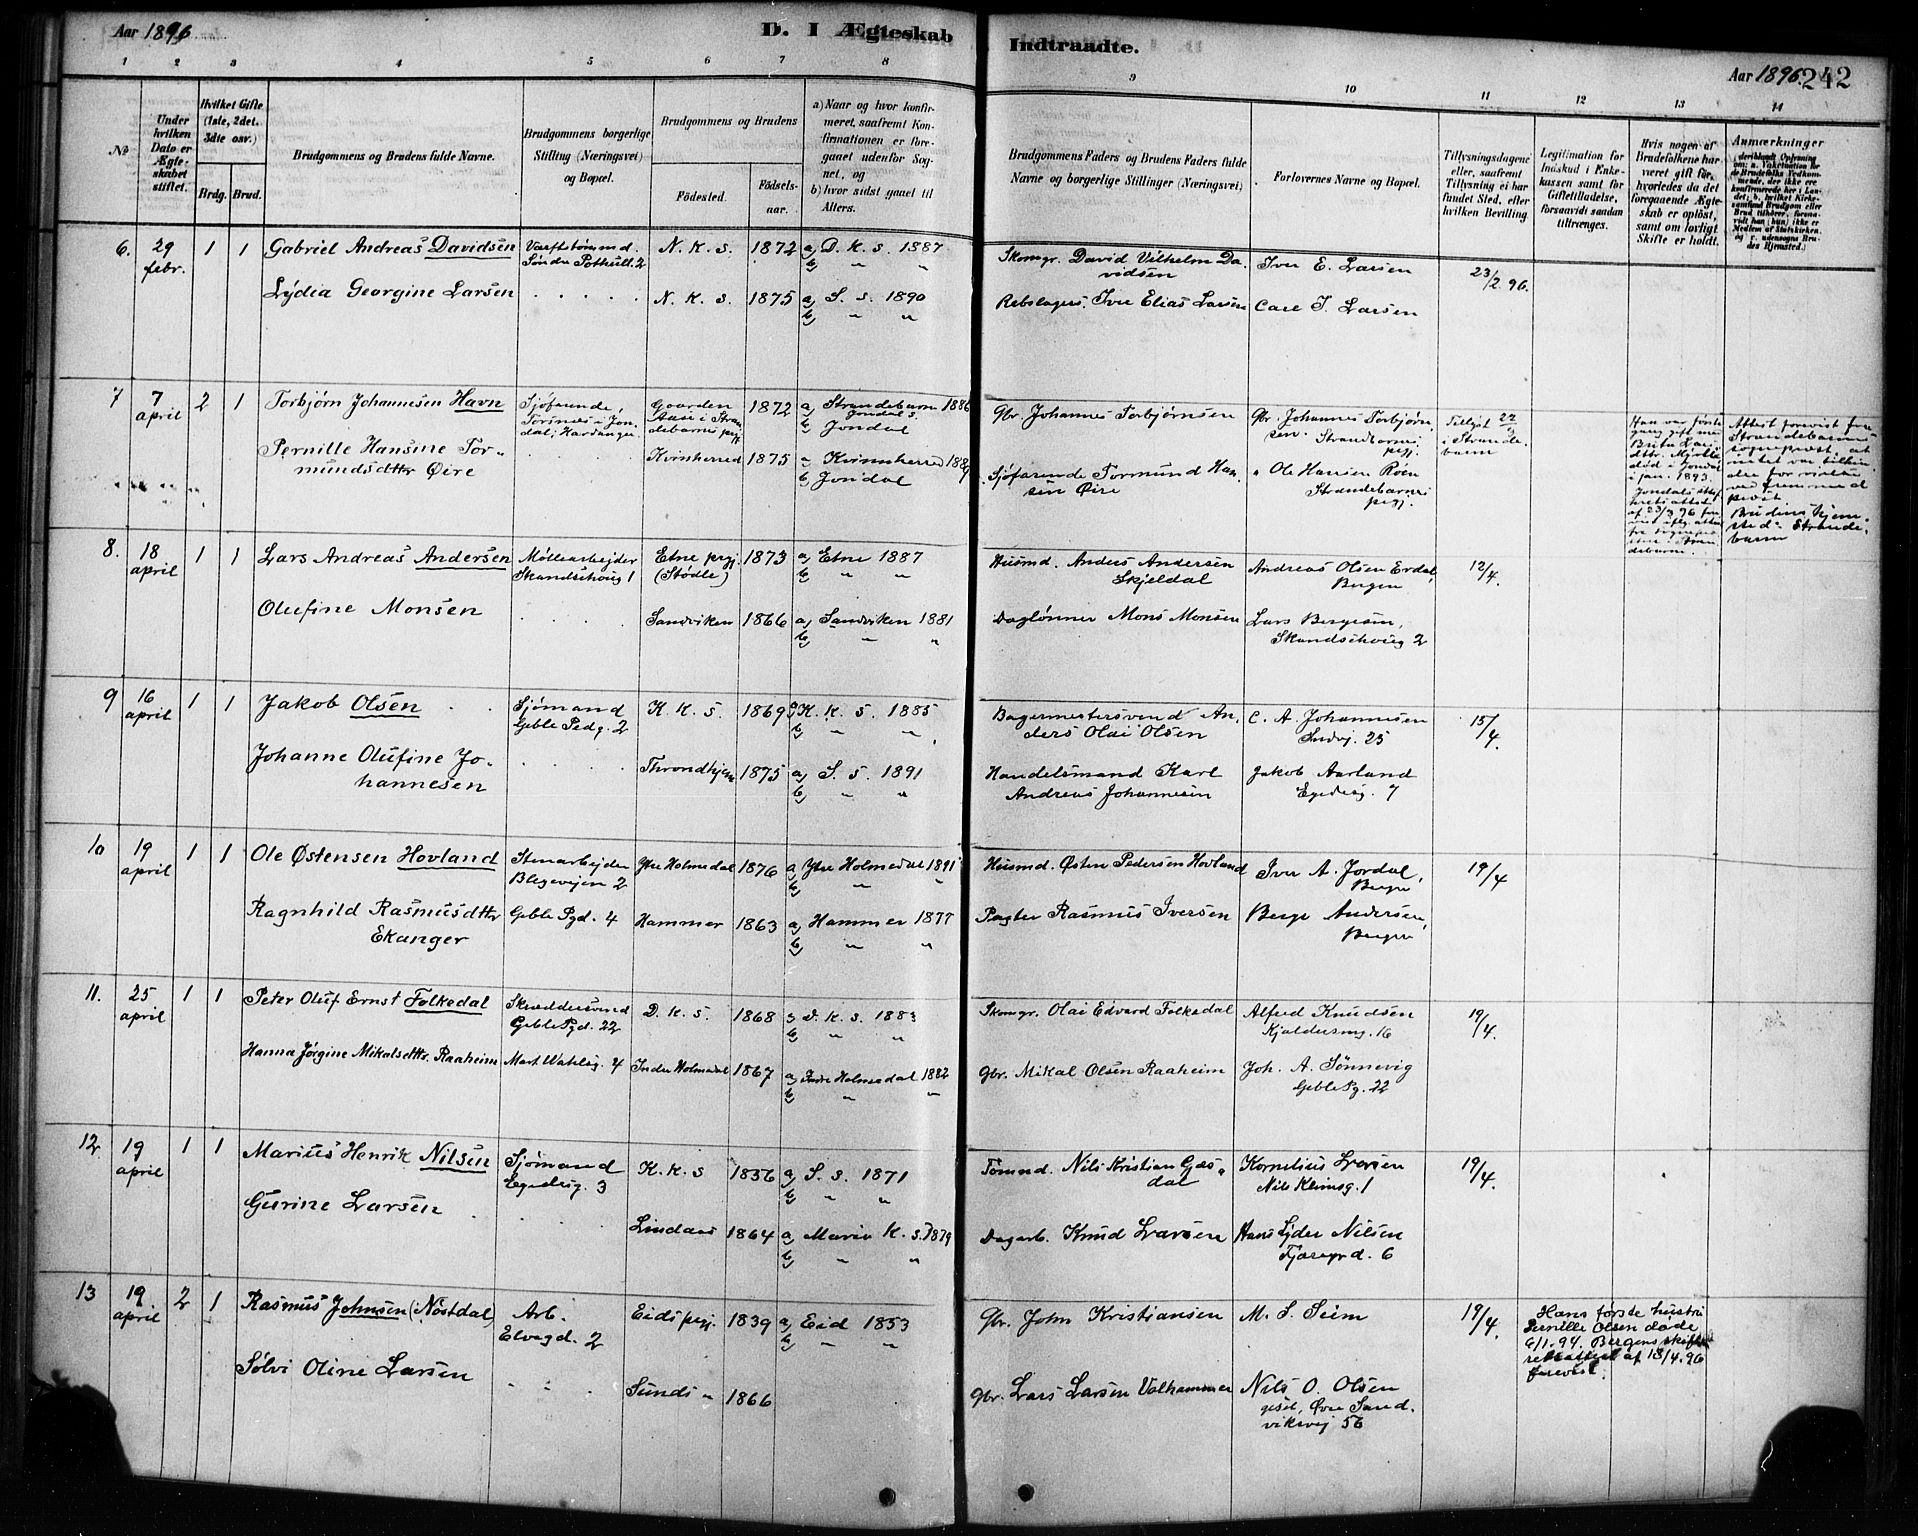 Aar 1896
D. I Ægteskab
Indtraadte.
Aar 1896.
242
1 2 3 4 5 6 7 8 9 10 11 12 13 14
No
Under hvilken Dato er Ægteskabet stiftet.
Hvilket Gifte (1ste, 2det, 3die osv.)
Brdg. Brud.
Brudgommens og Brudens fulde Navne.
Brudgommens borgerlige Stilling (Næringsvei) og Bopæl.
Brudgommens og Brudens
Fødested.
Fødselsaar.
a) Naar og hvor konfirmeret, saafremt Konfirmationen er foregaaet udenfor Sognet, og
b) hvor sidst gaaet til Alters.
Brudgommens Faders og Brudens Faders fulde Navne og borgerlige Stillinger (Næringsvei)
Forlovernes Navne og Bopæl.
Tillysningsdagene eller, saafremt Tillysning ei har fundet Sted, efter hvilken Bevilling.
Legitimation for Indskud i Enkekassen samt for Giftetilladelse, forsaavidt saadan tiltrænges.
Hvis nogen af Brudefolkene har været gift før, hvorledes da det foregaaende Ægteskab er opløst, samt om lovligt Skifte er holdt.
Anmærkninger
6. 29 febr. 1 1 Gabriel Andreas Davidsen
N. K. S. 1872 a) D. K. S. 1887 b) " "
Skomgr. David Vilhelm Davidsen
Iver E. Larsen
23/2 96.
Lydia Georgine Larsen
N. K. S. 1875 a) S. S. 1890 b) " "
Rebslager. Iver Elias Larsen
Carl J. Larsen
7 7 april 2 1 Torbjørn Johannesen Havn
Sjøfarende, Torsnes i Jondal, Hardanger
Gaarden Aase i Strandebarms pgj. 1872 a) Strandebarm 1886 Jondal S. b) Jondal
Gbr. Johannes Torbjørnsen
Gbr. Johannes Torbjørnsen Strandebarms pgj.
Tillyst i Strandebarm
Han var første gang gift med Brita Larsdttr. død i Jondal i jan. 1893.
Attest forevist fra Strandebarms sogneprest at
Brudens hjemsted: Strandebarm
Pernille Hansine Tormundsdttr Øire
Kvinherred 1875 a) Kvinnherred 1889 b) Jondal
Sjøfarende Tormund Hansen Øire
" Ole Hansen Røen Strandebarms pgj.
8. 18 april 1 1 Lars Andreas Andersen
Møllearbejder Skandsehoug 1
Etne pgj. (Stødle) 1873 a) Etne 1887 b) " "
Husmd. Anders Andersen Skjeldal
Andreas Olsen Erdal, Bergen
12/4.
Olufine Monsen
Sandviken 1866 a) Sandviken 1881 b) " "
Daglønner Mons Monsen
Lars Bergesen, Skandsehoug 2
9 16 april 1 1 Jakob Olsen
Sjømand Geble Pedg. 2
K. K. S. 1869 a) K. K. S. 1885 b) " "
Bagermestersvend Anders Olai Olsen
C. A. Johannesen Sndvj. 25
15/4.
Johanne Olufine Johannesen
Throndhjem 1875 a) S. S. 1891 b) " "
Handelsmand Karl Andreas Johannesen
Jakob Aarland Egedesg. 7
10 19 april 1 1 Ole Østensen Hovland
Stenarbejder Blegevejen 2
Ytre Holmedal 1876 a) Ytre Holmedal 1891 b) " "
Husmd. Østen Pedersen Hovland
Iver A. Jordal, Bergen
19/4
Ragnhild Rasmusdttr Ekanger
Geble Pgd. 4
Hammer 1863 a) Hammer 1877 b) " "
Pagter Rasmus Iversen
Berge Andersen, Bergen
11. 25 april 1 1 Peter Oluf Ernst Folkedal
Skræddersvend Geble Pgd. 22
D. K. S. 1868 a) D. K. S. 1883 b) " "
Skomgr. Olai Edvard Folkedal
Alfred Knudsen Kjeldersmg. 16
19/4.
Hanna Jørgine Mikalsdttr. Raaheim
Mart Vatlesg. 4
Indre Holmedal 1867 a) Indre Holmedal 1882 b) " "
Gbr. Mikal Olsen Raaheim
Joh. A. Sønnevig Geble Pg. 22
12. 19 april 1 1 Marius Henrik Nilsen
Sjømand Egedesg. 3
K. K. S 1856 a) S. S. 1871 b) " "
Tømmd. Nils Kristian Gæsdal
Kornelius Larsen Nils Klimsg. 1
19/4.
Gurine Larsen
Lindaas 1864 a) Maria K. S. 1879 b) " "
Dagarb. Knud Larsen
Hans Lyder Nilsen Fjæregrd. 6
13 19. april 2 1 Rasmus Johnsen (Nøstdal)
Arb. Elvegd. 2
Eids pgj. 1839 a) Eid 1853 b) " "
Gbr. John Kristiansen
M. S. Seim
19/4.
Hans første hustru Pernille Olsen døde 6/1.94. Bergens skifteretsattest af 18/4.96 forevist.
Sølvi Oline Larsen
Sunds " 1866
Gbr. Lars Larsen Valhammer
Nils O. Olsen gsel, Øvre Sandviksvej 56